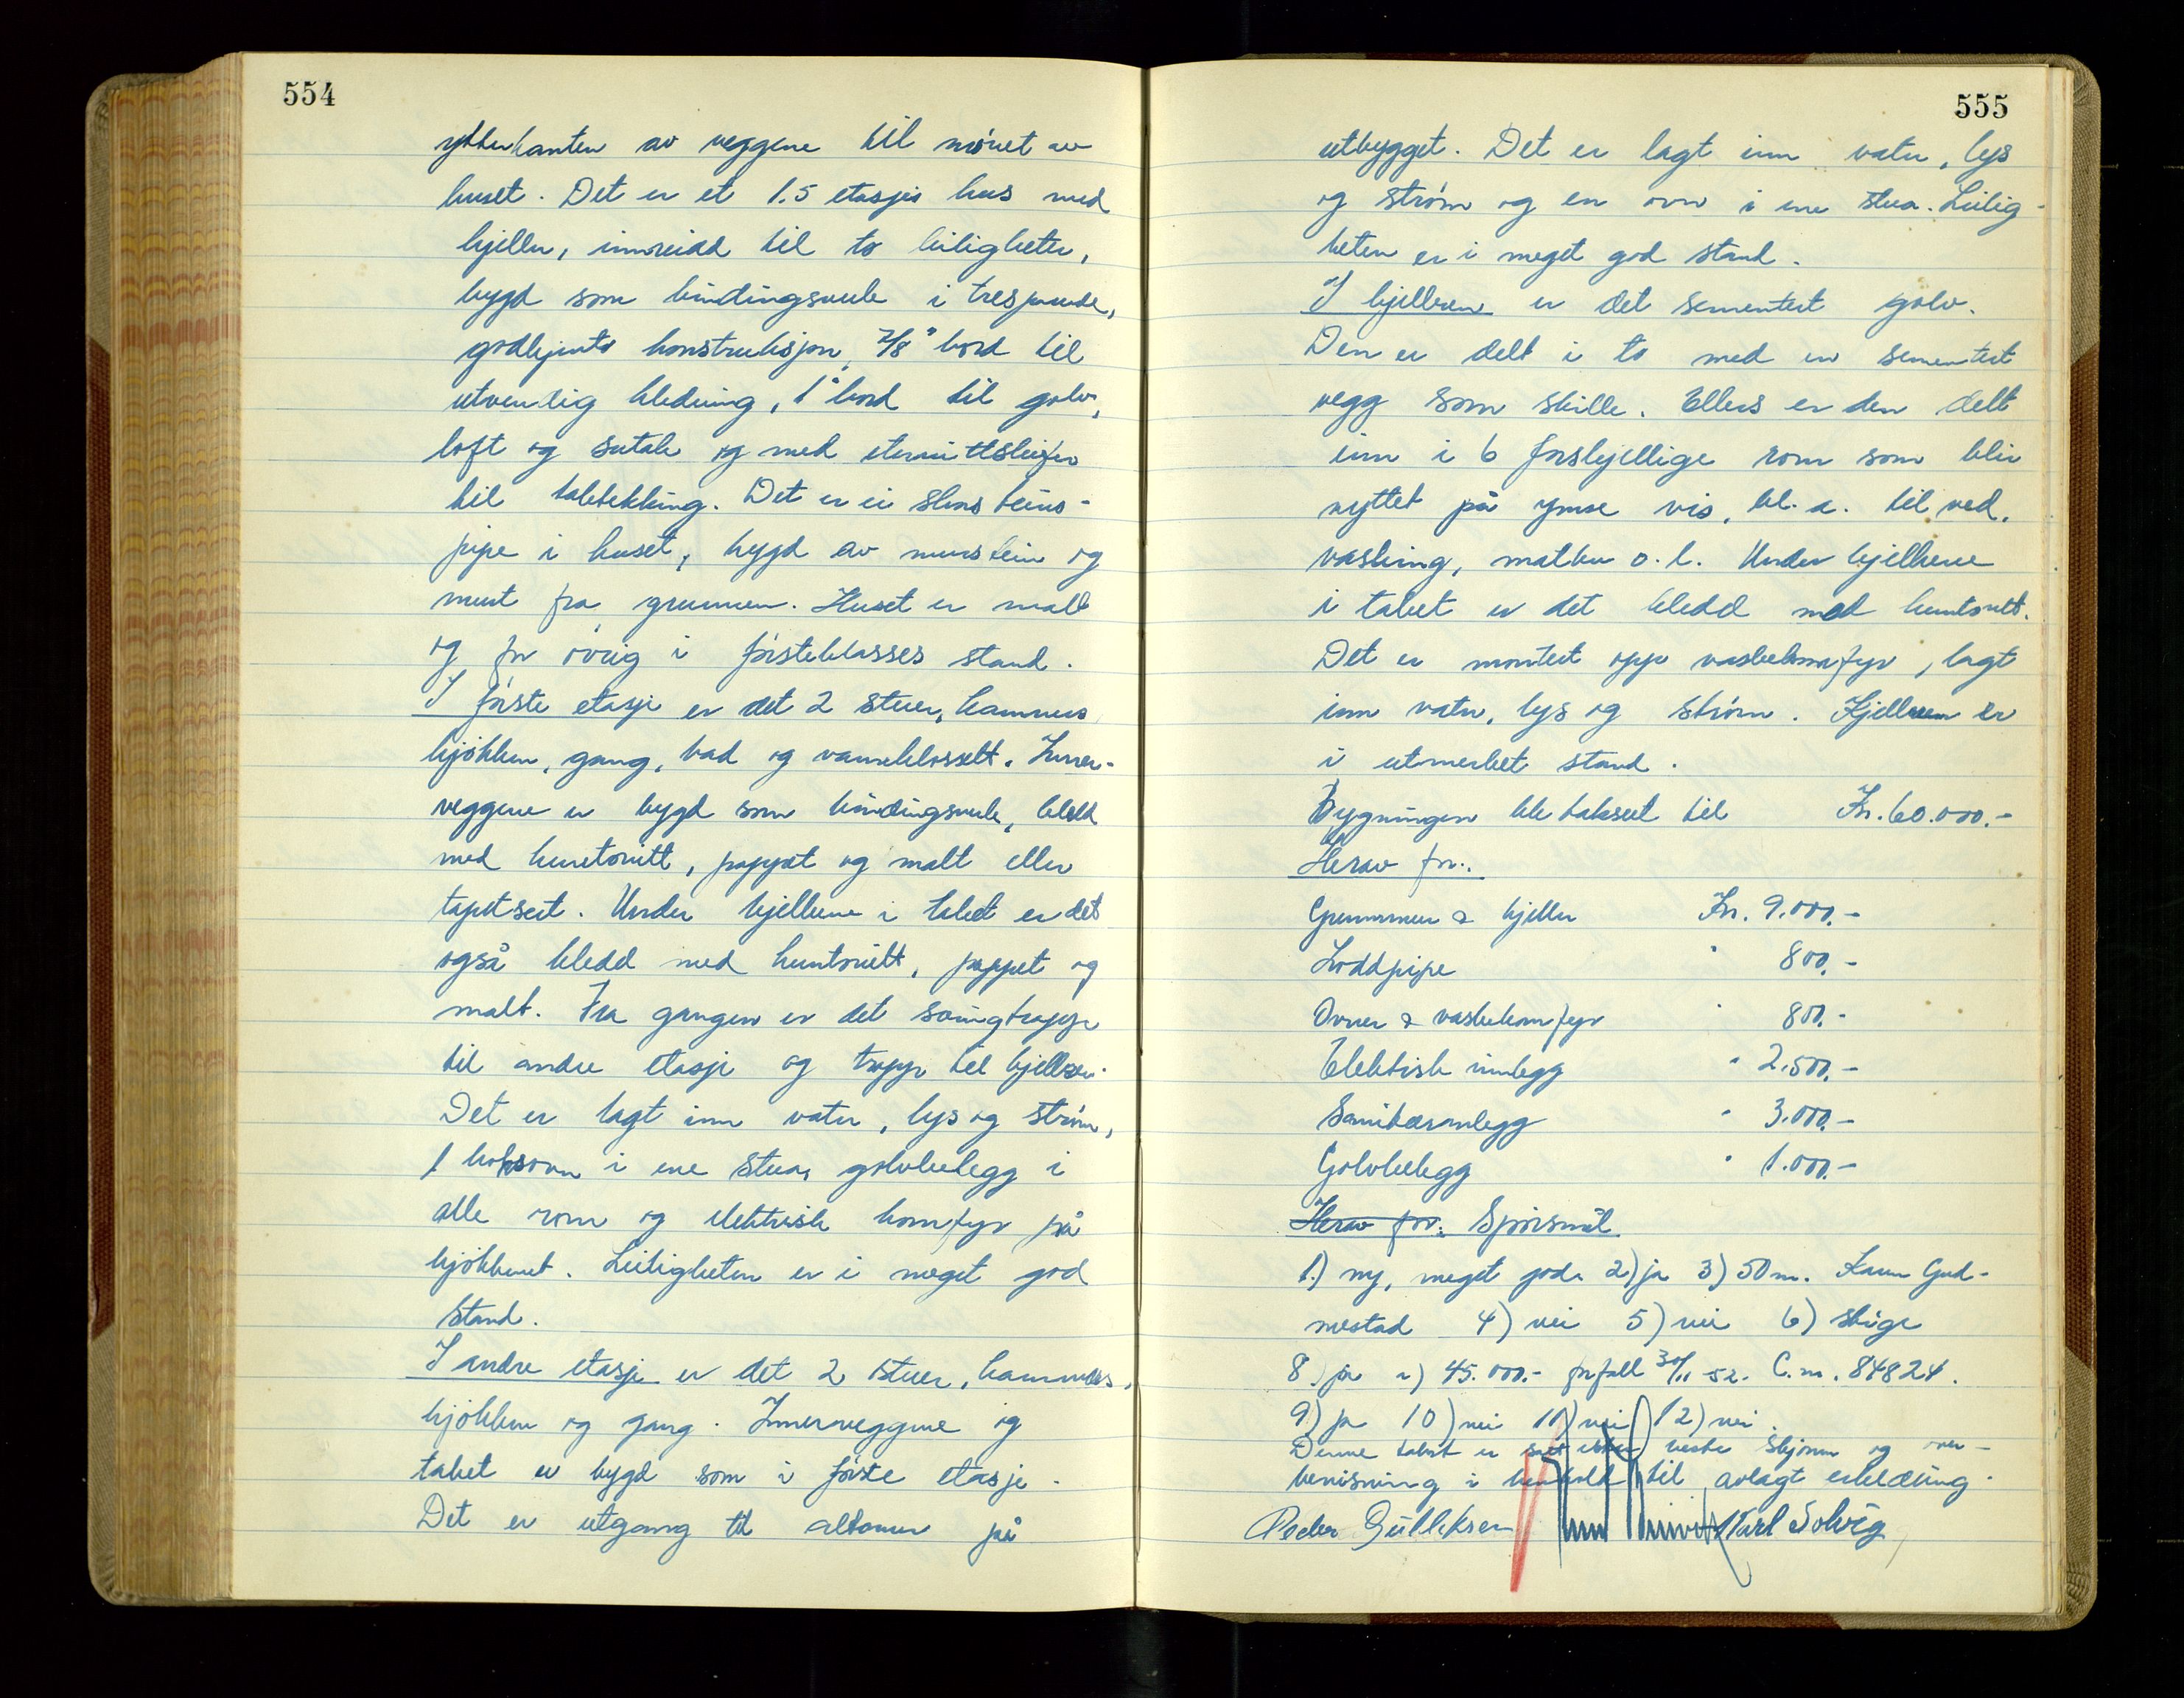 554
ytterkanten av veggene til mønet av
huset. Det er et 1.5 etasjes hus med
kjeller, innreidd til to leiligheter,
bygd som bindingsverk i
godkjente konstruksjon, 7/8" bord til
utvendig kledning, 1" bord til golv,
loft og sutak og med eternittskifer
til taktekking. Det er ei skorsteins-
pipe i huset, bygd av murstein og
murt fra grunnen. Huset er malt
og for øvrig i førsteklasses stand.
I første etasje er det 2 stuer, kammers
kjøkken, gang, bad og vannklosett. Inner-
veggene er bygd som bindingsverk, kledd
med huntonitt, pappet og malt eller
tapetsert. Under bjelkene i taket er det
også kledd med huntonitt, pappet og
malt. Fra gangen er det svingtrapp
til andre etasje og trapp til kjelleren.
Det er lagt inn vatn, lys og strøm,
1 koksovn i ene stua, golvbelegg i
alle rom og elektrisk komfyr på
kjøkkenet. Leiligheten er i meget god
stand.
I andre etasje er det 2 stuer, kammers,
kjøkken og gang. Innerveggene og
taket er bygd som i første etasje.
Det er utgang til altanen på
555
utbygget. Det er lagt inn vatn, lys
og strøm og en ovn i ene stua. Leilig-
heten er i meget god stand.
I kjelleren er det sementert golv.
Den er delt i to med en sementert
vegg som skille. Ellers er den delt
inn i 6 forskjellige rom som blir
nyttet på ymse vis, bl. a. til ved,
vasking, matbu o. l. Under bjelkene
i taket er det kledd med huntonitt.
Det er montert opp vaskekomfyr, lagt
inn vatn, lys og strøm. Kjelleren er
i utmerket stand.
Bygningen ble taksert til Kr. 60.000.-
Herav for:
Grunnmur & kjeller Kr. 9.000.-
Loddpipe " 800.-
Ovner & vaskekomfyr " 800.-
Elektrisk innlegg " 2.500.-
Sanitæranlegg " 3.000.-
Golvbelegg " 1.000.-
Herav for: Spørsmål
1) ny, meget god. 2) ja 3) 50 m. Karen Gud-
mestad 4) nei 5) nei 6) stige
8) ja a) 45.000.- forfall 30/11-52. C.nr. 84824.
9) ja 10) nei 11) nei 12) nei.
Denne takst er satt etter beste skjønn og over-
bevisning i henhold til avlagt erklæring.
Peder Gulliksen Karl Solvig